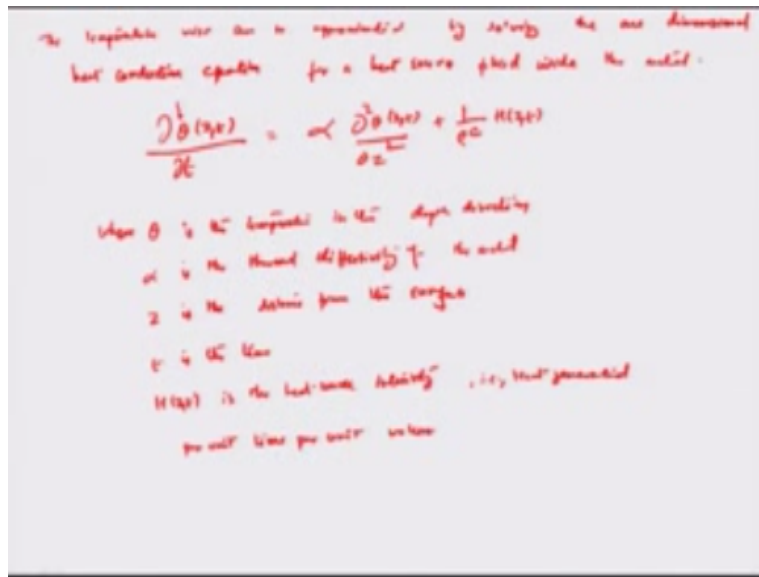 The temperature rise can be approximated by solving the one dimensional
heat conduction equation for a heat source placed inside the metal.
∂θ(z,t)/∂t = α ∂²θ(z,t)/∂z² + 1/ρc H(z,t)
where θ is the temperature in the depth direction
α is the thermal diffusivity of the metal
z is the distance from the surface
t is the time
H(z,t) is the heat source intensity, i.e., heat generated
per unit time per unit volume